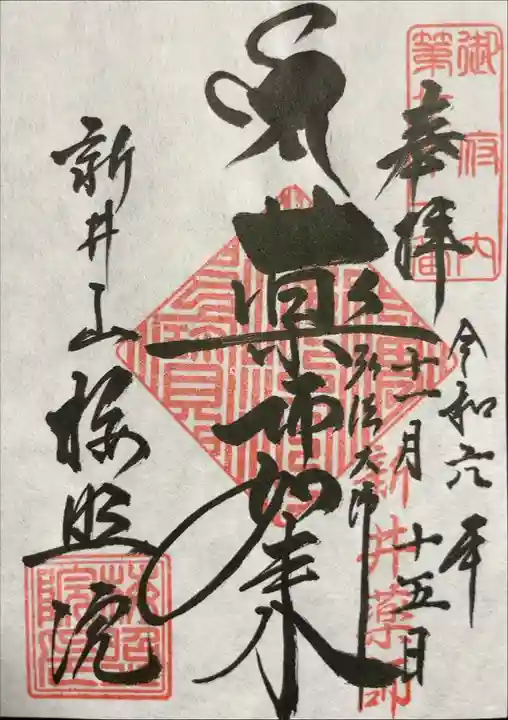 奉拝
令和六年
十一月十五日
薬師如来
弘法大師
新井山 梅照院
御府内
第
新井薬師
梅照院